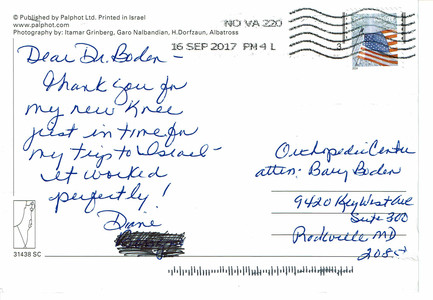 © Published by Palphot Ltd. Printed in Israel
www.palphot.com
Photography by: Itamar Grinberg, Garo Nalbandian, H.Dorfzaun, Albatross
NO VA 220
16 SEP 2017 PM 4 L
Dear Dr. Boden –
Thank you for
my new knee
just in time for
my trip to Israel –
it worked
perfectly!
Diane
Orthopedic Center
attn: Barry Boden
9420 Key West Ave
Suite 300
Rockville MD
31438 SC